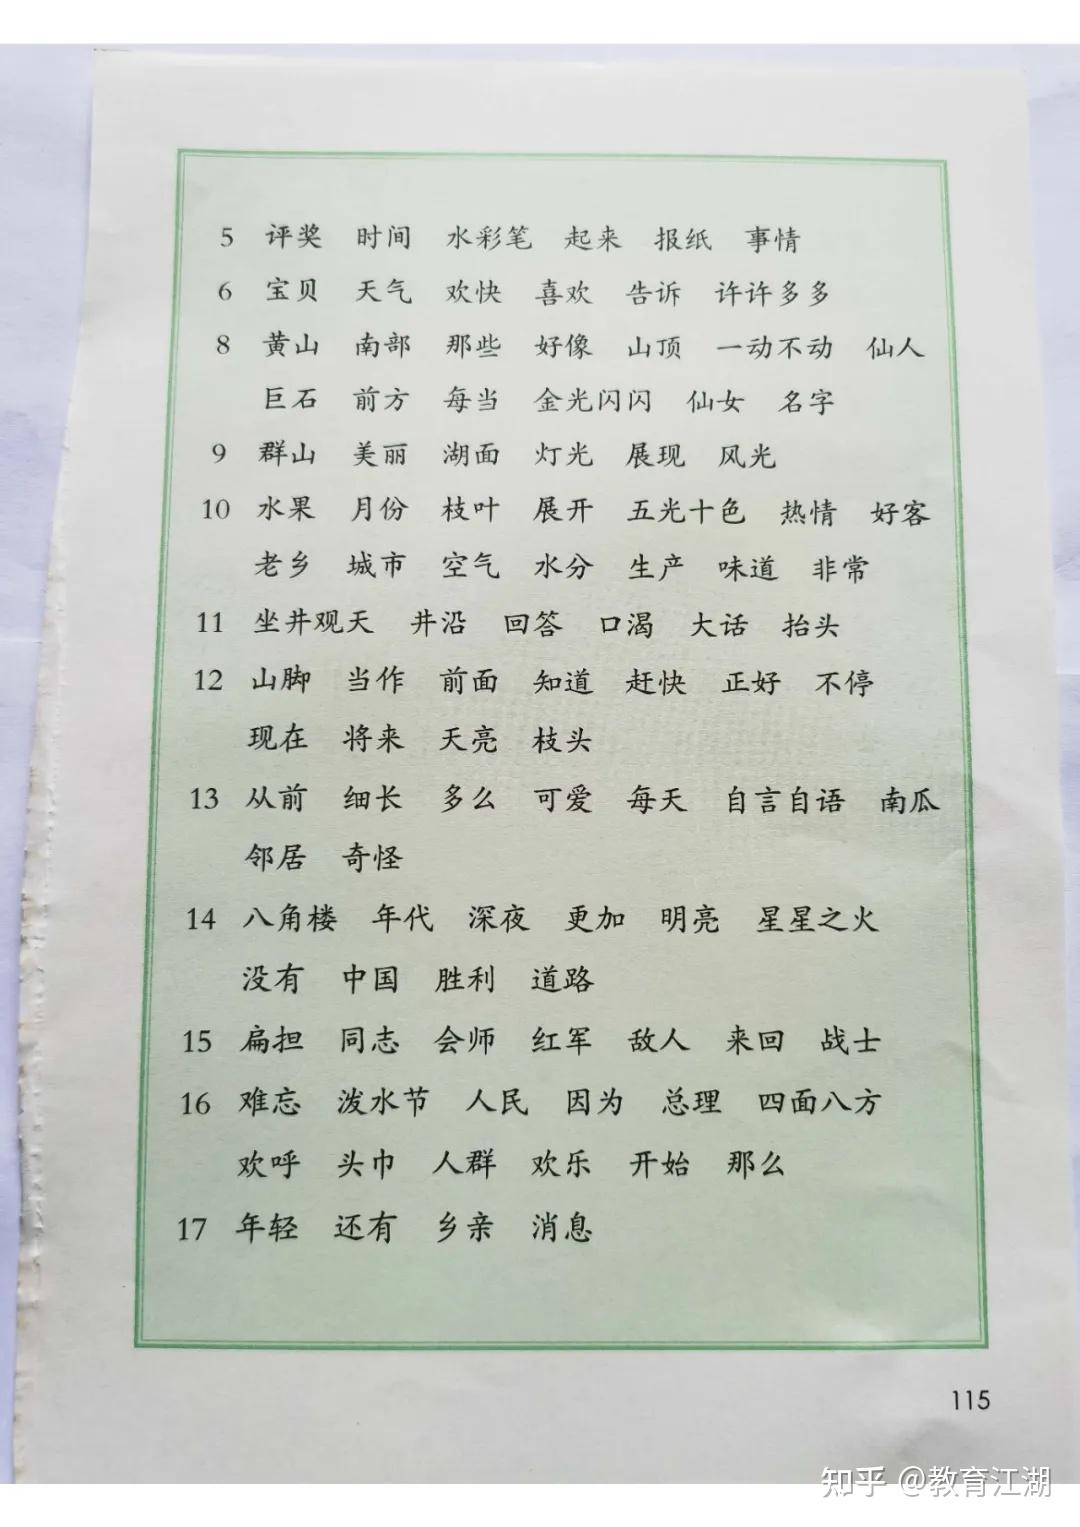 5 评奖 时间 水彩笔 起来 报纸 事情
6 宝贝 天气 欢快 喜欢 告诉 许许多多
8 黄山 南部 那些 好像 山顶 一动不动 仙人
巨石 前方 每当 金光闪闪 仙女 名字
9 群山 美丽 湖面 灯光 展现 风光
10 水果 月份 枝叶 展开 五光十色 热情 好客
老乡 城市 空气 水分 生产 味道 非常
11 坐井观天 井沿 回答 口渴 大话 抬头
12 山脚 当作 前面 知道 赶快 正好 不停
现在 将来 天亮 枝头
13 从前 细长 多么 可爱 每天 自言自语 南瓜
邻居 奇怪
14 八角楼 年代 深夜 更加 明亮 星星之火
没有 中国 胜利 道路
15 扁担 同志 会师 红军 敌人 来回 战士
16 难忘 泼水节 人民 因为 总理 四面八方
欢呼 头巾 人群 欢乐 开始 那么
17 年轻 还有 乡亲 消息
115
知乎 @教育江湖